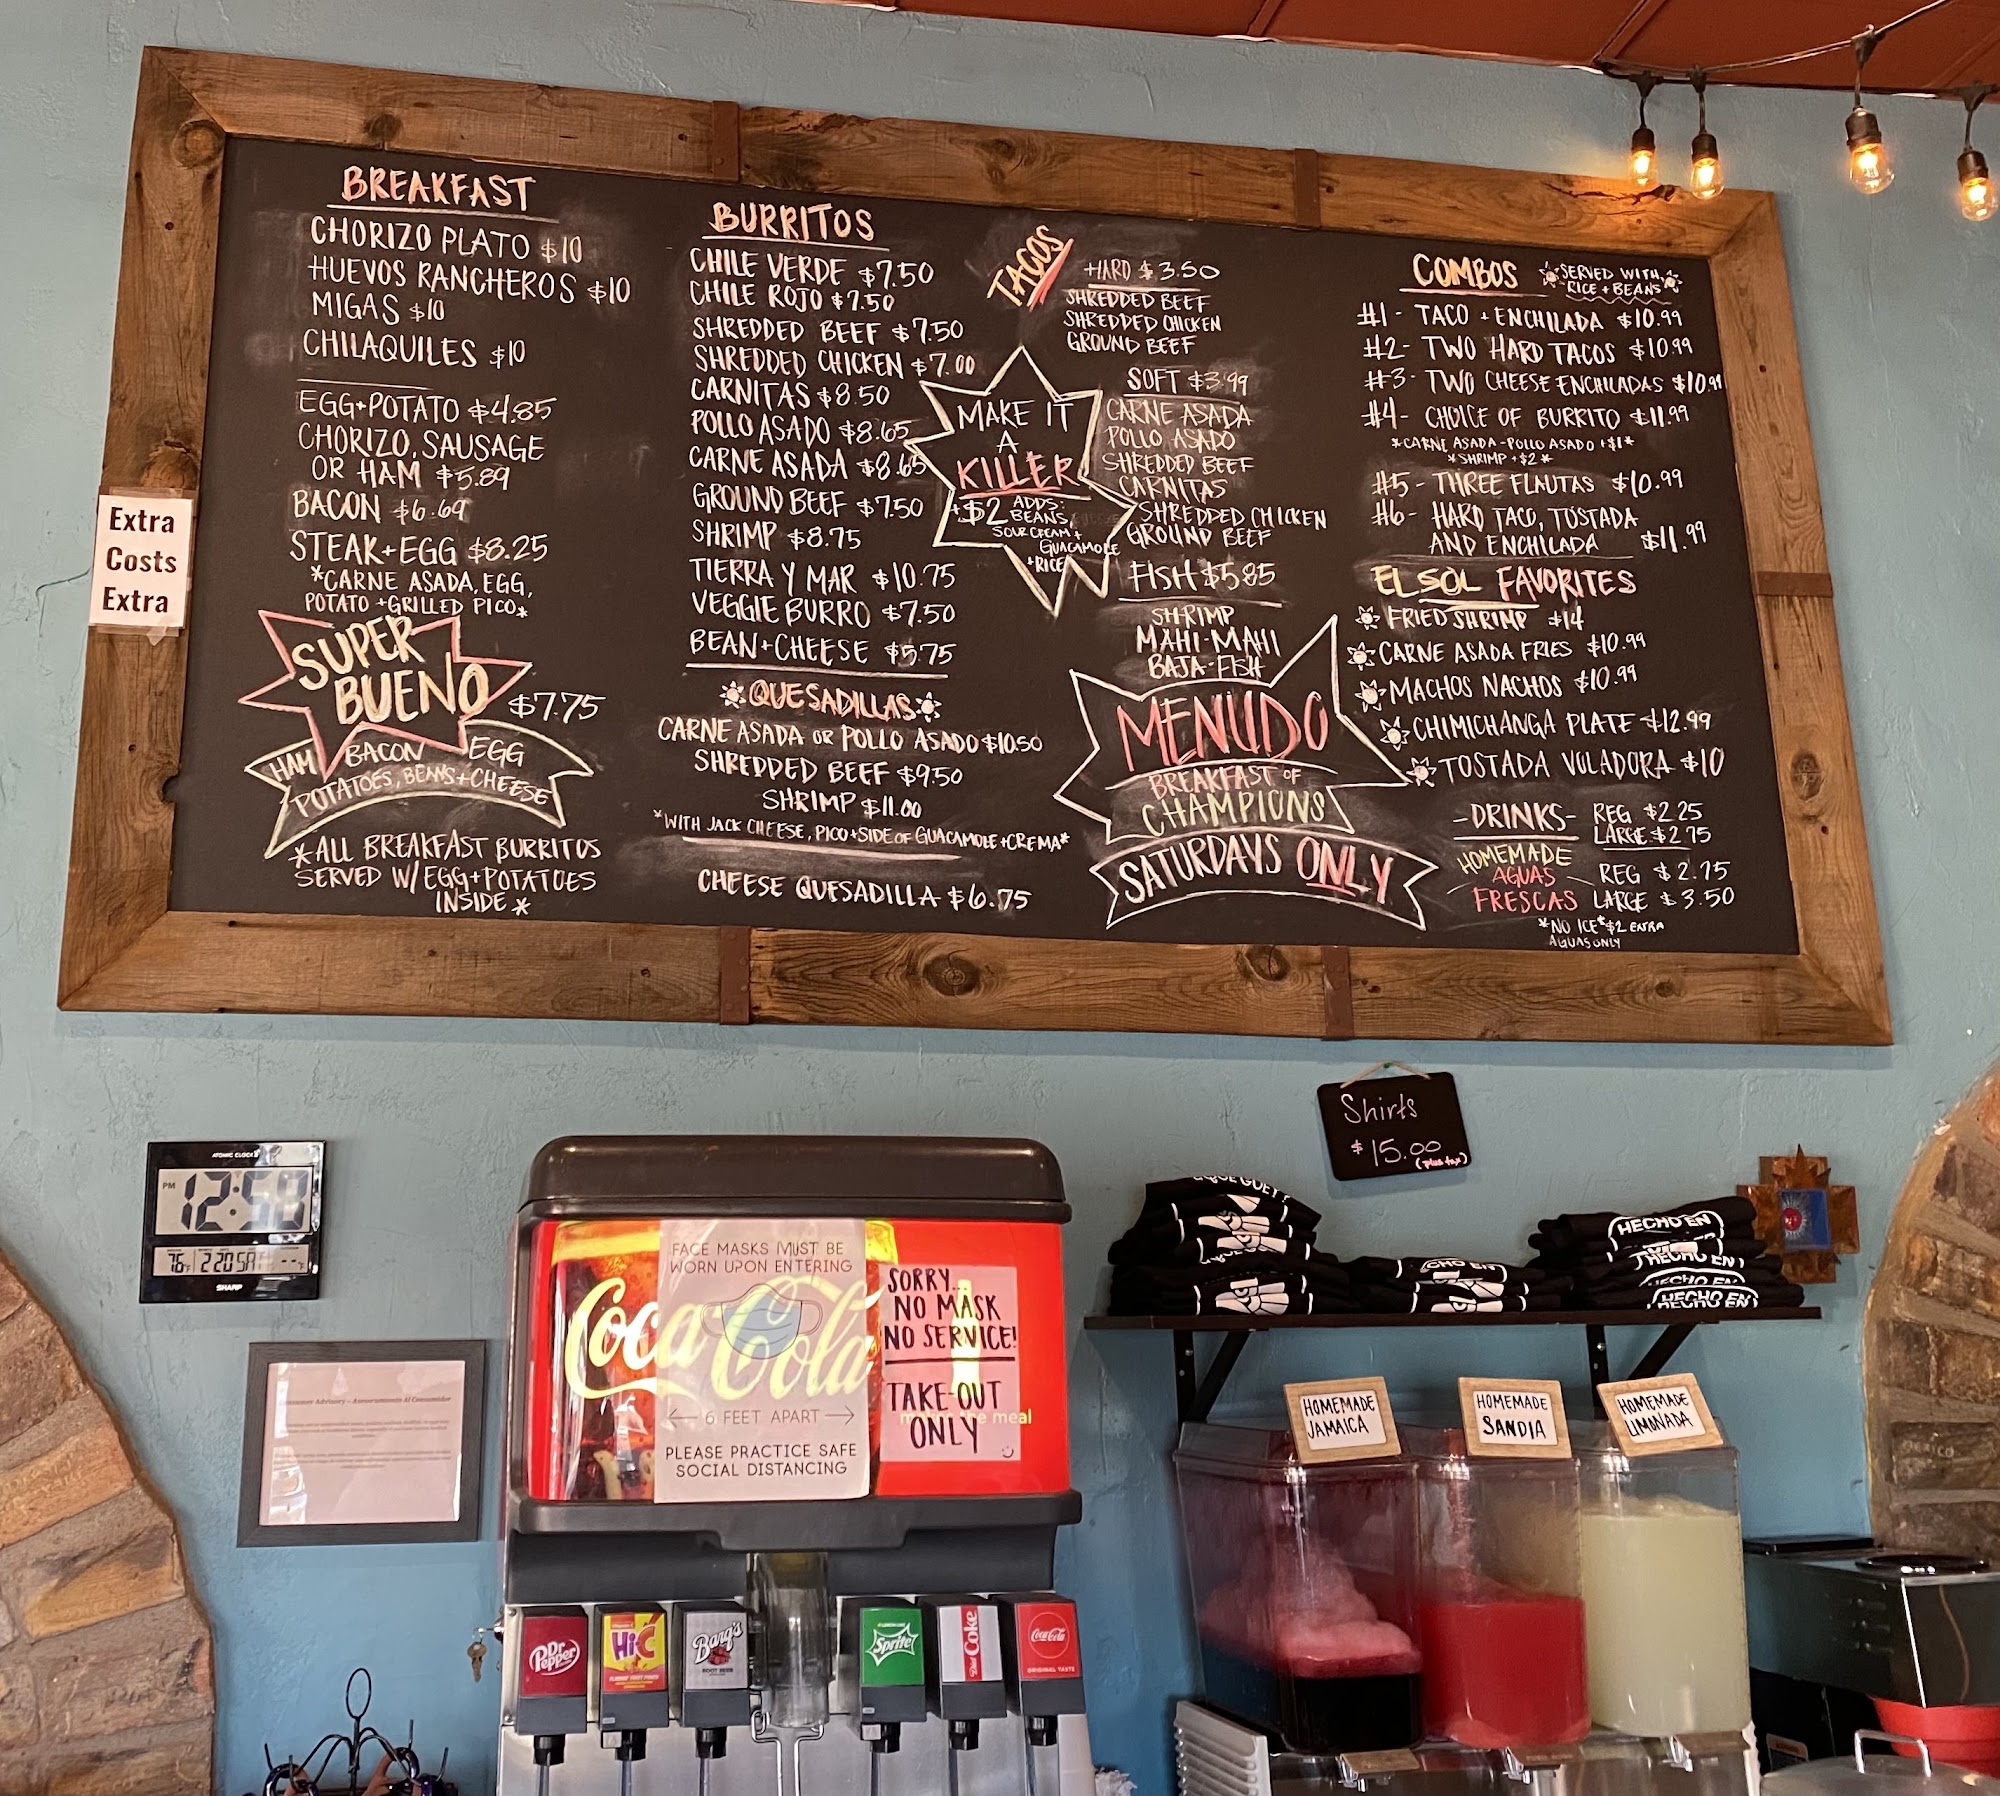 BREAKFAST
CHORIZO PLATO $10
HUEVOS RANCHEROS $10
MIGAS $10
CHILAQUILES $10
EGG+POTATO $4.85
CHORIZO, SAUSAGE
OR HAM $5.89
BACON $6.69
STEAK+EGG $8.25
*CARNE ASADA, EGG,
POTATO +GRILLED PICO*
SUPER
BUENO $7.75
HAM BACON EGG
POTATOES, BEANS+CHEESE
*ALL BREAKFAST BURRITOS
SERVED W/ EGG+POTATOES
INSIDE*
Extra
Costs
Extra
BURRITOS
CHILE VERDE $7.50
CHILE ROJO $7.50
SHREDDED BEEF $7.50
SHREDDED CHICKEN $7.00
CARNITAS $8.50
POLLO ASADO $8.65
CARNE ASADA $8.65
GROUND BEEF $7.50
SHRIMP $8.75
TIERRA Y MAR $10.75
VEGGIE BURRO $7.50
BEAN+CHEESE $5.75
QUESADILLAS
CARNE ASADA OR POLLO ASADO $10.50
SHREDDED BEEF $9.50
SHRIMP $11.00
*WITH JACK CHEESE, PICO+SIDE OF GUACAMOLE+CREMA*
CHEESE QUESADILLA $6.75
MAKE IT
A
KILLER
+$2 ADDS:
BEANS,
SOUR CREAM+
GUACAMOLE
+RICE
TACOS
HARD $3.50
SHREDDED BEEF
SHREDDED CHICKEN
GROUND BEEF
SOFT $3.99
CARNE ASADA
POLLO ASADO
SHREDDED BEEF
CARNITAS
SHREDDED CHICKEN
GROUND BEEF
FISH $5.85
SHRIMP
MAHI-MAHI
BAJA-FISH
MENUDO
BREAKFAST OF
CHAMPIONS
SATURDAYS ONLY
COMBOS
SERVED WITH
RICE + BEANS
#1- TACO + ENCHILADA $10.99
#2- TWO HARD TACOS $10.99
#3- TWO CHEESE ENCHILADAS $10.99
#4- CHOICE OF BURRITO $11.99
*CARNE ASADA-POLLO ASADO +$1*
*SHRIMP +$2*
#5- THREE FLAUTAS $10.99
#6- HARD TACO, TOSTADA
AND ENCHILADA $11.99
EL SOL FAVORITES
FRIED SHRIMP $14
CARNE ASADA FRIES $10.99
MACHOS NACHOS $10.99
CHIMICHANGA PLATE $12.99
TOSTADA VOLADORA $10
-DRINKS- REG $2.25
LARGE $2.75
HOMEMADE
AGUAS
FRESCAS
REG $2.75
LARGE $3.50
*NO ICE* $2 EXTRA
AGUAS ONLY
Shirts
$15.00
(plus tax)
ATOMIC CLOCK
PM
12:58
76 2 20 SA
SHARP
FACE MASKS MUST BE
WORN UPON ENTERING
Coca-Cola
← 6 FEET APART →
PLEASE PRACTICE SAFE
SOCIAL DISTANCING
SORRY...
NO MASK
NO SERVICE!
TAKE-OUT
ONLY
the meal
HECHO EN
HECHO EN
HECHO EN
HECHO EN
HOMEMADE
JAMAICA
HOMEMADE
SANDIA
HOMEMADE
LIMONADA
Dr Pepper
Hi-C
Barq's
ROOT BEER
Sprite
Diet Coke
Coca-Cola
ORIGINAL TASTE